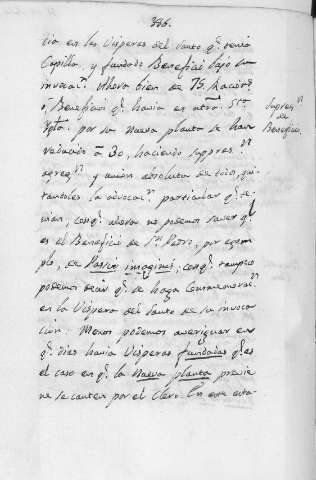 386.
cia en las Visperas del Santo q.e tenia
Capilla, y fundado Beneficio bajo su
invocac.n Ahora bien de 75. Racion.s
o, Beneficios q.e havia en ntra. Sta.
Ygla. por su nueva planta se han
reducido a 30, haciendo supres.n
agreg.n y union absoluta de todos, qui-
tandoles la advocac.n particular q.e te-
nian; conq.e ahora no podemos saver q.l
es el Beneficio de Sn. Pedro, por egem-
plo, de Parcis imagines; conq.e tampoco
podemos decir q.e se haga Conmemorac.n
en la Vispera del Santo de su invoca-
cion; Menos podemos averiguar en
q.e dias havia Visperas fundadas q.e es
el caso en q.e la Nueva planta previe-
ne se canten por el Clero. En este esta-
Supres.n
de
Beneficios